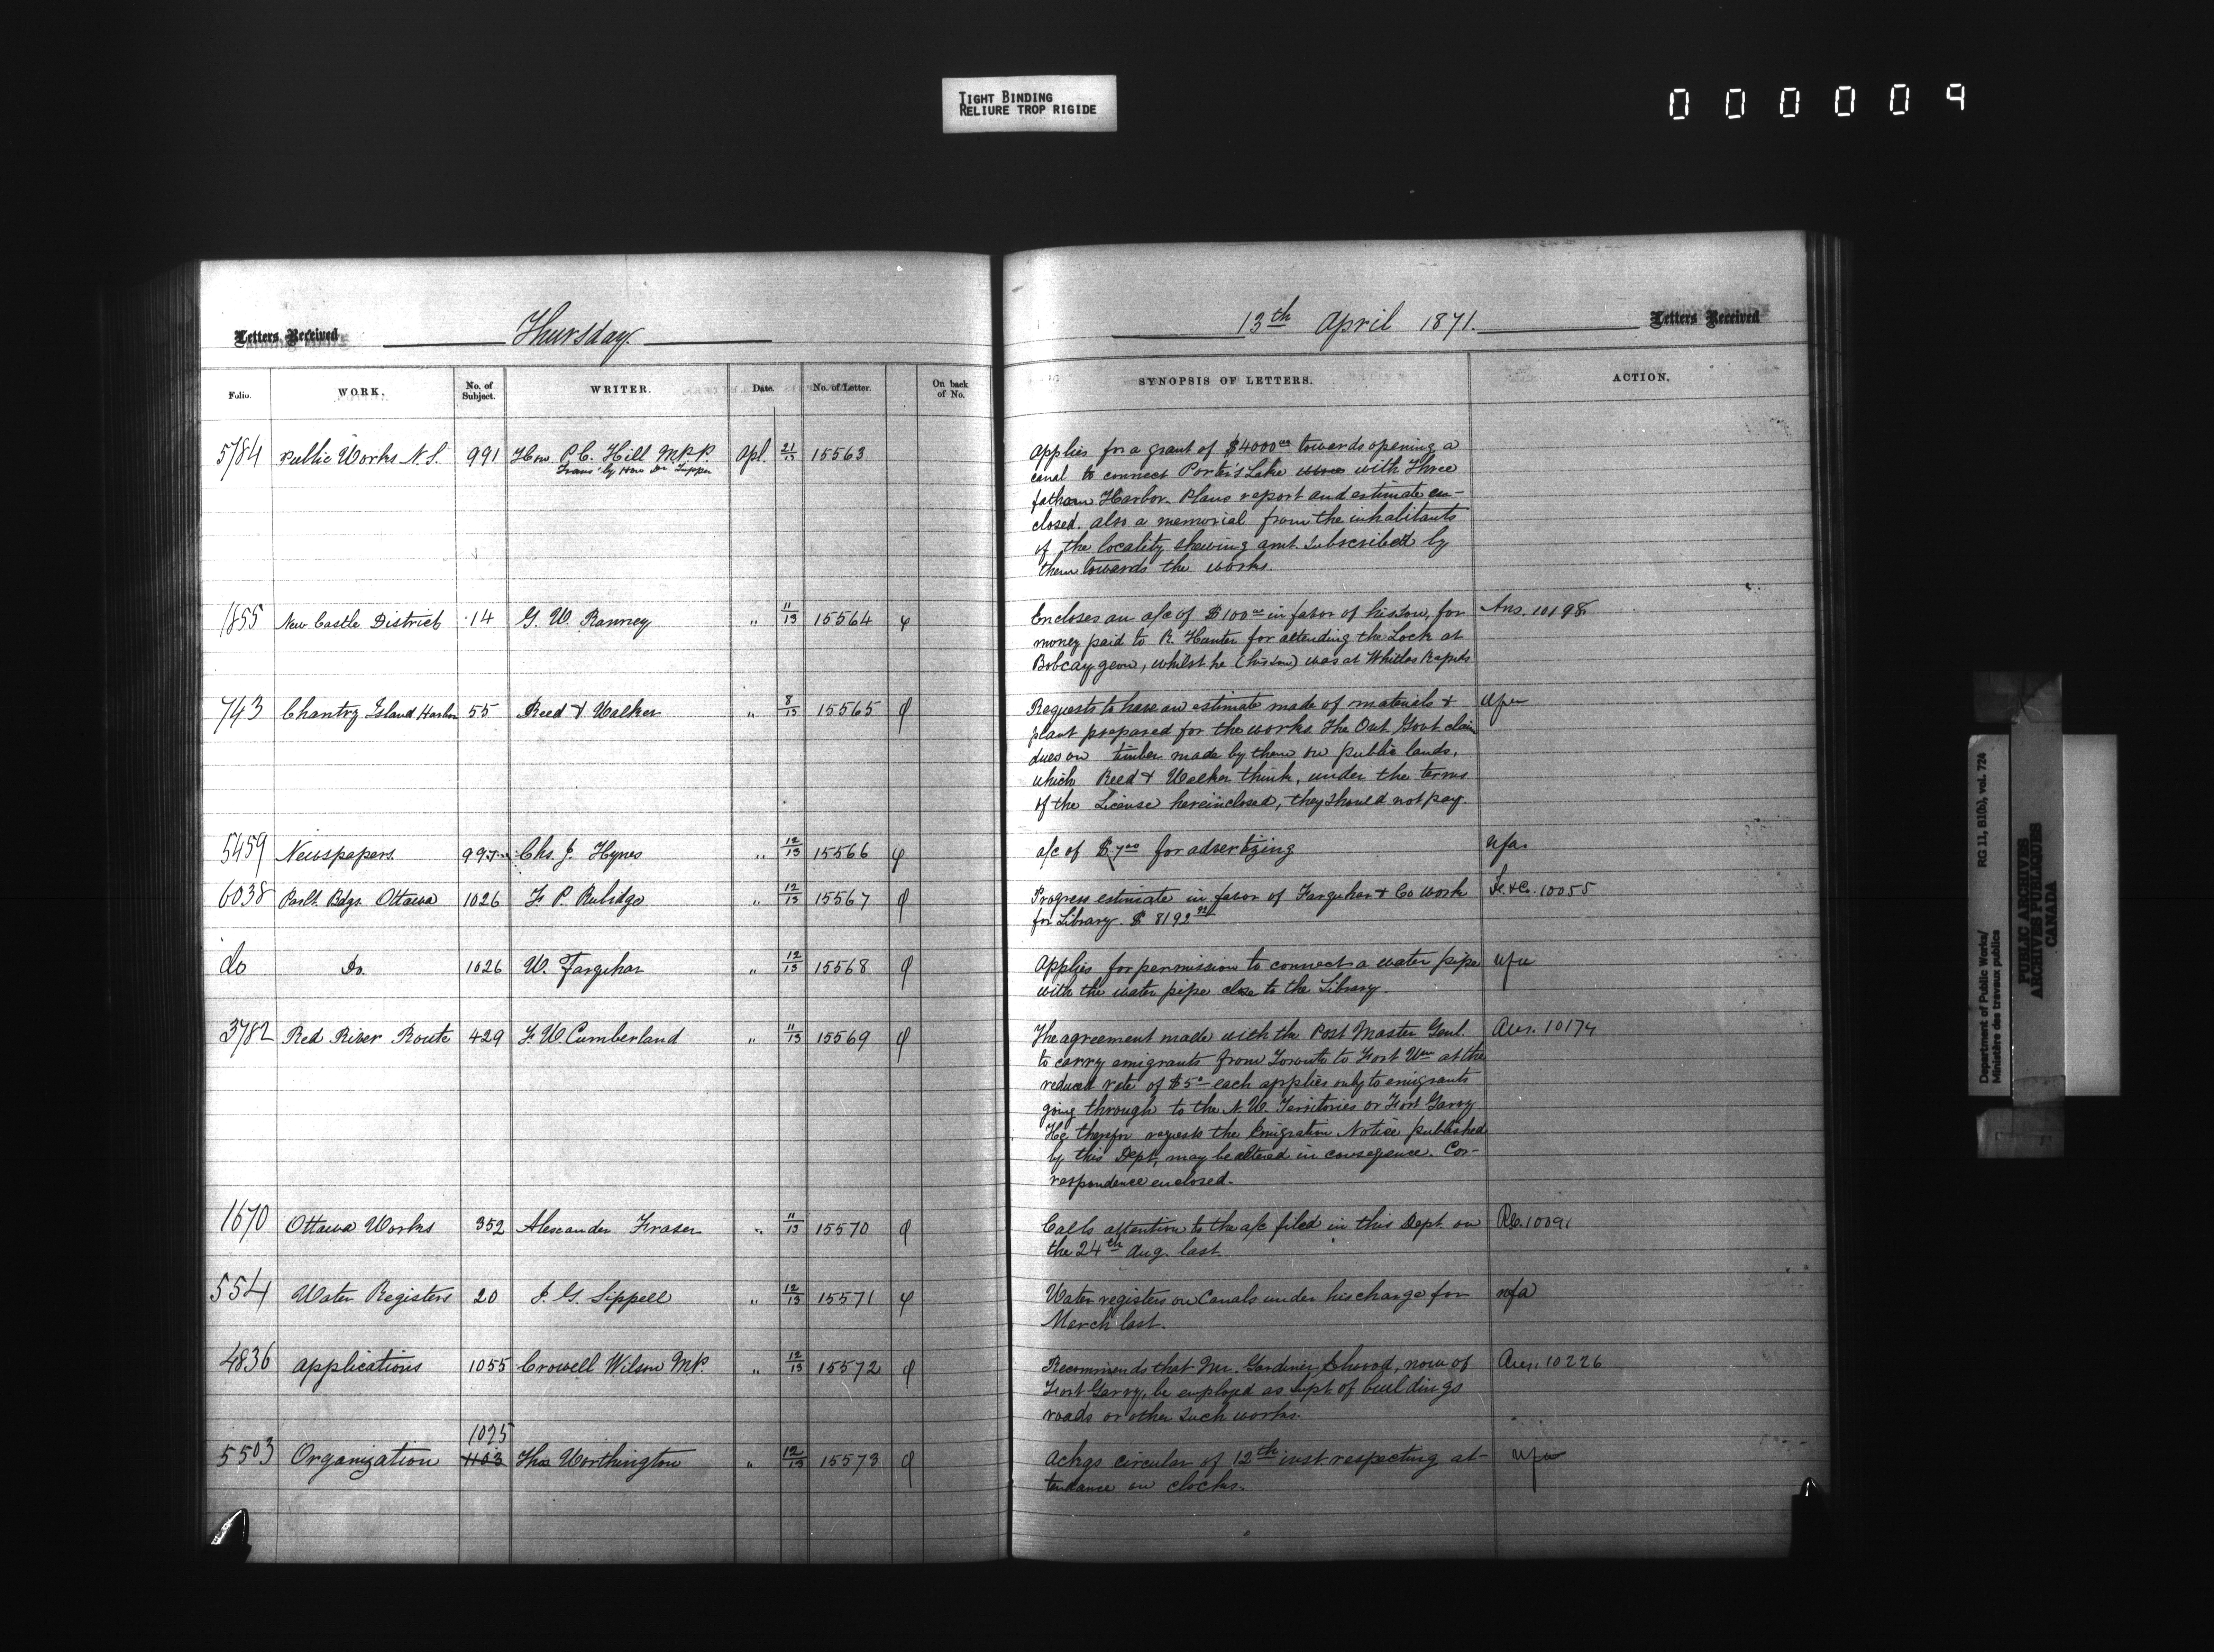 TIGHT BINDING
RELIURE TROP RIGIDE
000009
Letters Received Thursday
Folio. WORK. No. of Subject. WRITER. Date. No. of Letter. On back of No.
5784 Public Works N.S. 991 Hon P.C. Hill M.P.P. Apl. 21/13 15563
Trans' by Hon Dr. Tupper
1855 New Castle District 14 G. W. Ranney " 11/13 15564 φ
743 Chantry Island Harbor 55 Reed & Walker " 8/13 15565 φ
5459 Newspapers 997 Chs. J. Hynes " 12/13 15566 φ
6038 Parlt. Bdgs. Ottawa 1026 F. P. Rubidge " 12/13 15567 φ
do Do. 1026 W. Farquhar " 12/13 15568 φ
3782 Red River Route 429 F. W. Cumberland " 11/13 15569 φ
1670 Ottawa Works 352 Alexander Fraser " 11/13 15570 φ
554 Water Registers 20 J. G. Sippell " 12/13 15571 φ
4836 Applications 1055 Crowell Wilson M.P. " 12/13 15572 φ
1075
5503 Organization 1103 Thos Worthington " 12/13 15573 φ
13th April 1871. Letters Received
SYNOPSIS OF LETTERS. ACTION.
Applies for a grant of $4000.00 towards opening a
canal to connect Porter's Lake with Three
fathom Harbor. Plans report and estimate en-
closed. also a memorial from the inhabitants
of the locality shewing amt. subscribed by
them towards the works.
Encloses an a/c of $100.00 in favor of his son, for Ans. 10198
money paid to R. Hunter for attending the Lock at
Bobcaygeon, whilst he (his son) was at Whitlas Rapids
Requests to have an estimate made of materials & nfa
plant prepared for the works. The Ont Govt claim
dues on timber made by them on public lands,
which Reed & Walker think, under the terms
of the License herein closed, they should not pay.
a/c of $7.00 for advertizing nfa
Progress estimate in favor of Farquhar & Co work F.&Co. 10055
for Library. $8192
Applies for permission to connect a water pipe nfa
with the water pipe close to the Library.
The agreement made with the Post Master Genl. Ans. 10174
to carry emigrants from Toronto to Fort Wm at the
reduced rate of $5 each applies only to emigrants
going through to the N.W. Territories or Fort Garry
He therefor requests the Emigration Notice published
by this Dept, may be altered in consequence. Cor-
respondence enclosed.
Calls attention to the a/c filed in this Dept. on 10091
the 24th Aug. last.
Water registers on Canals under his charge for nfa
March last.
Recommends that Mr. Gardiner, now of Ans. 10226
Fort Garry, be employed as Supt of buildings
roads or other such works.
Ackgs circular of 12th inst respecting at- nfa
tendance on clocks.
Department of Public Works/ RG 11, B10(b), vol. 724
Ministère des travaux publics
PUBLIC ARCHIVES
ARCHIVES PUBLIQUES
CANADA